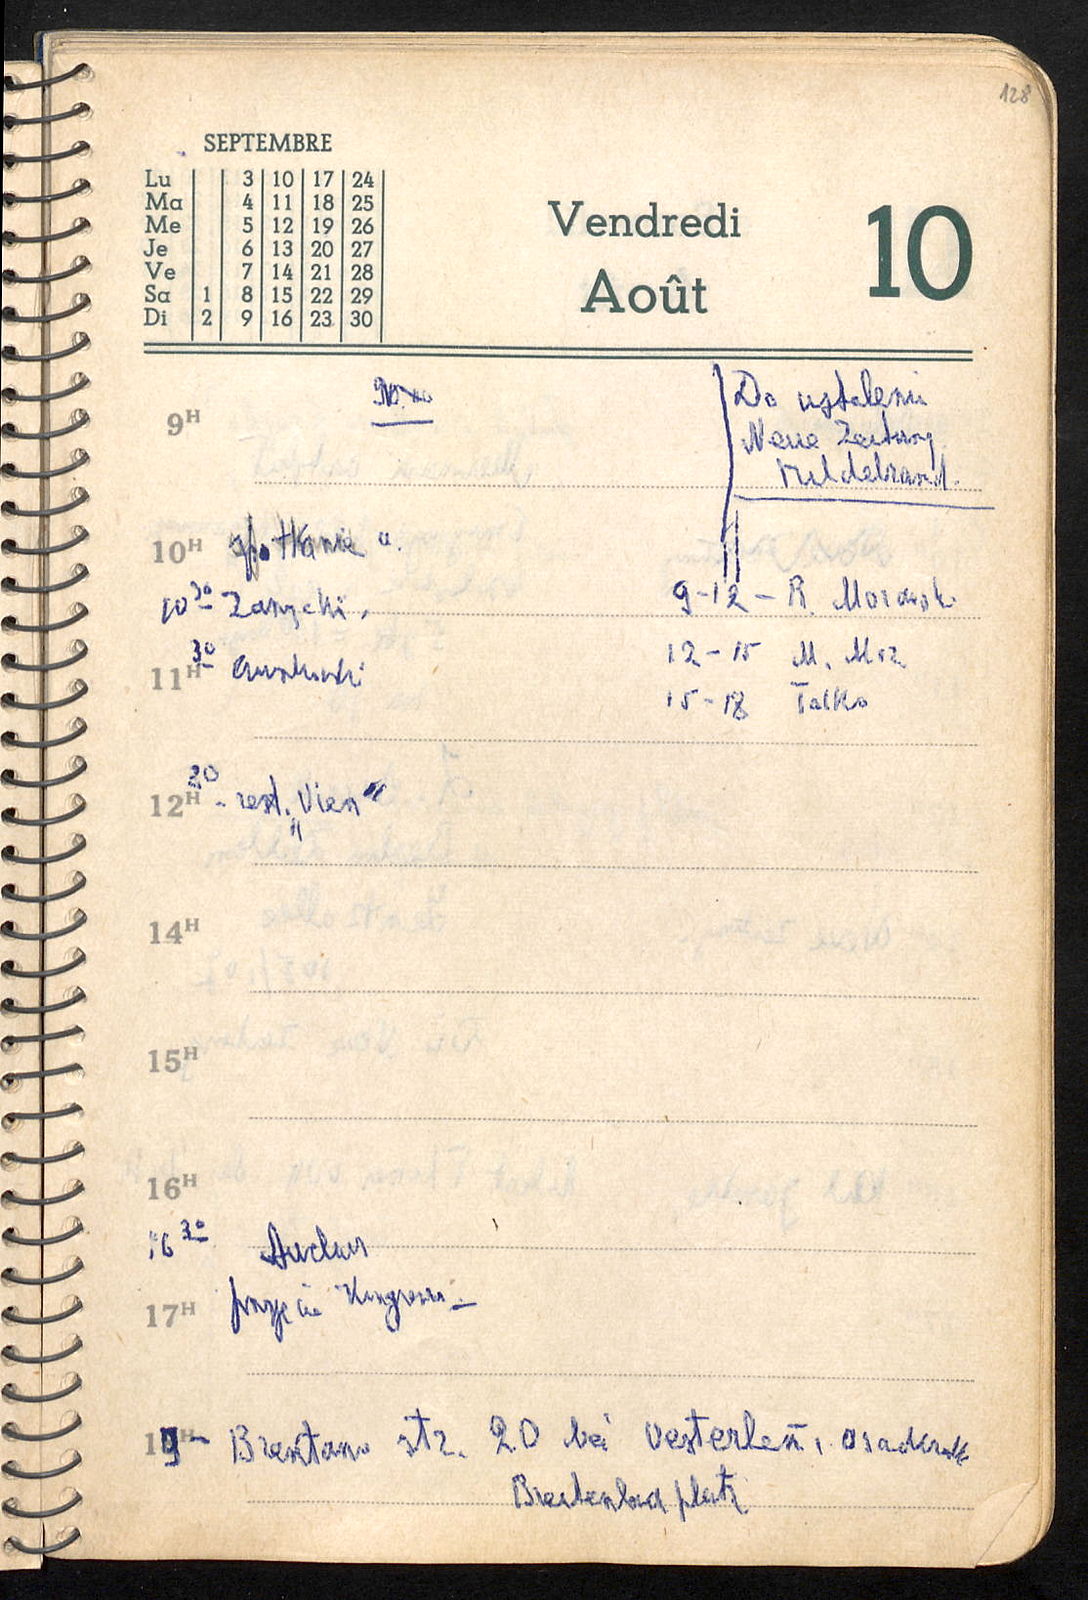 128
SEPTEMBRE
Lu 3 10 17 24
Ma 4 11 18 25
Me 5 12 19 26
Je 6 13 20 27
Ve 7 14 21 28
Sa 1 8 15 22 29
Di 2 9 16 23 30
Vendredi
Août
10
Do ustalenia
Neue Zeitung
Hildebrand.
9H
10H spotkanie u.
10 30 Zarycki,
9-12 – R. Morawsk
11H 30
12-15 M. Moz
15-18 Talko
12H 20 - rest. „Vien"
14H
15H
16H
16 30
17H przyjęcie Kongresu
19 - Brentano str. 20 bei Westerlen,
Brentanobad platz